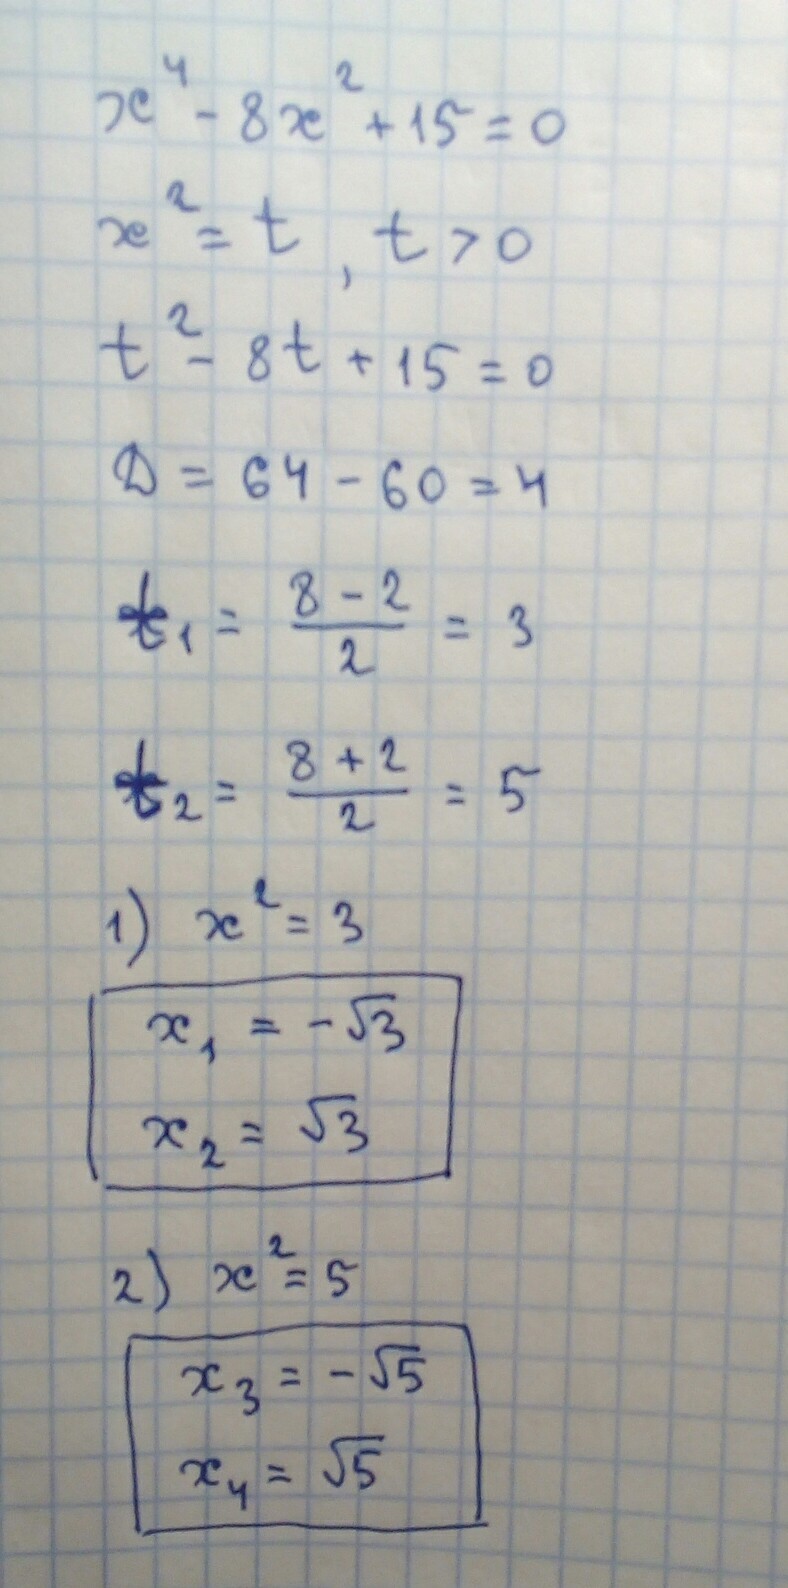 x⁴ - 8x² + 15 = 0
x² = t, t > 0
t² - 8t + 15 = 0
D = 64 - 60 = 4
t₁ = (8 - 2)/2 = 3
t₂ = (8 + 2)/2 = 5
1) x² = 3
x₁ = -√3
x₂ = √3
2) x² = 5
x₃ = -√5
x₄ = √5